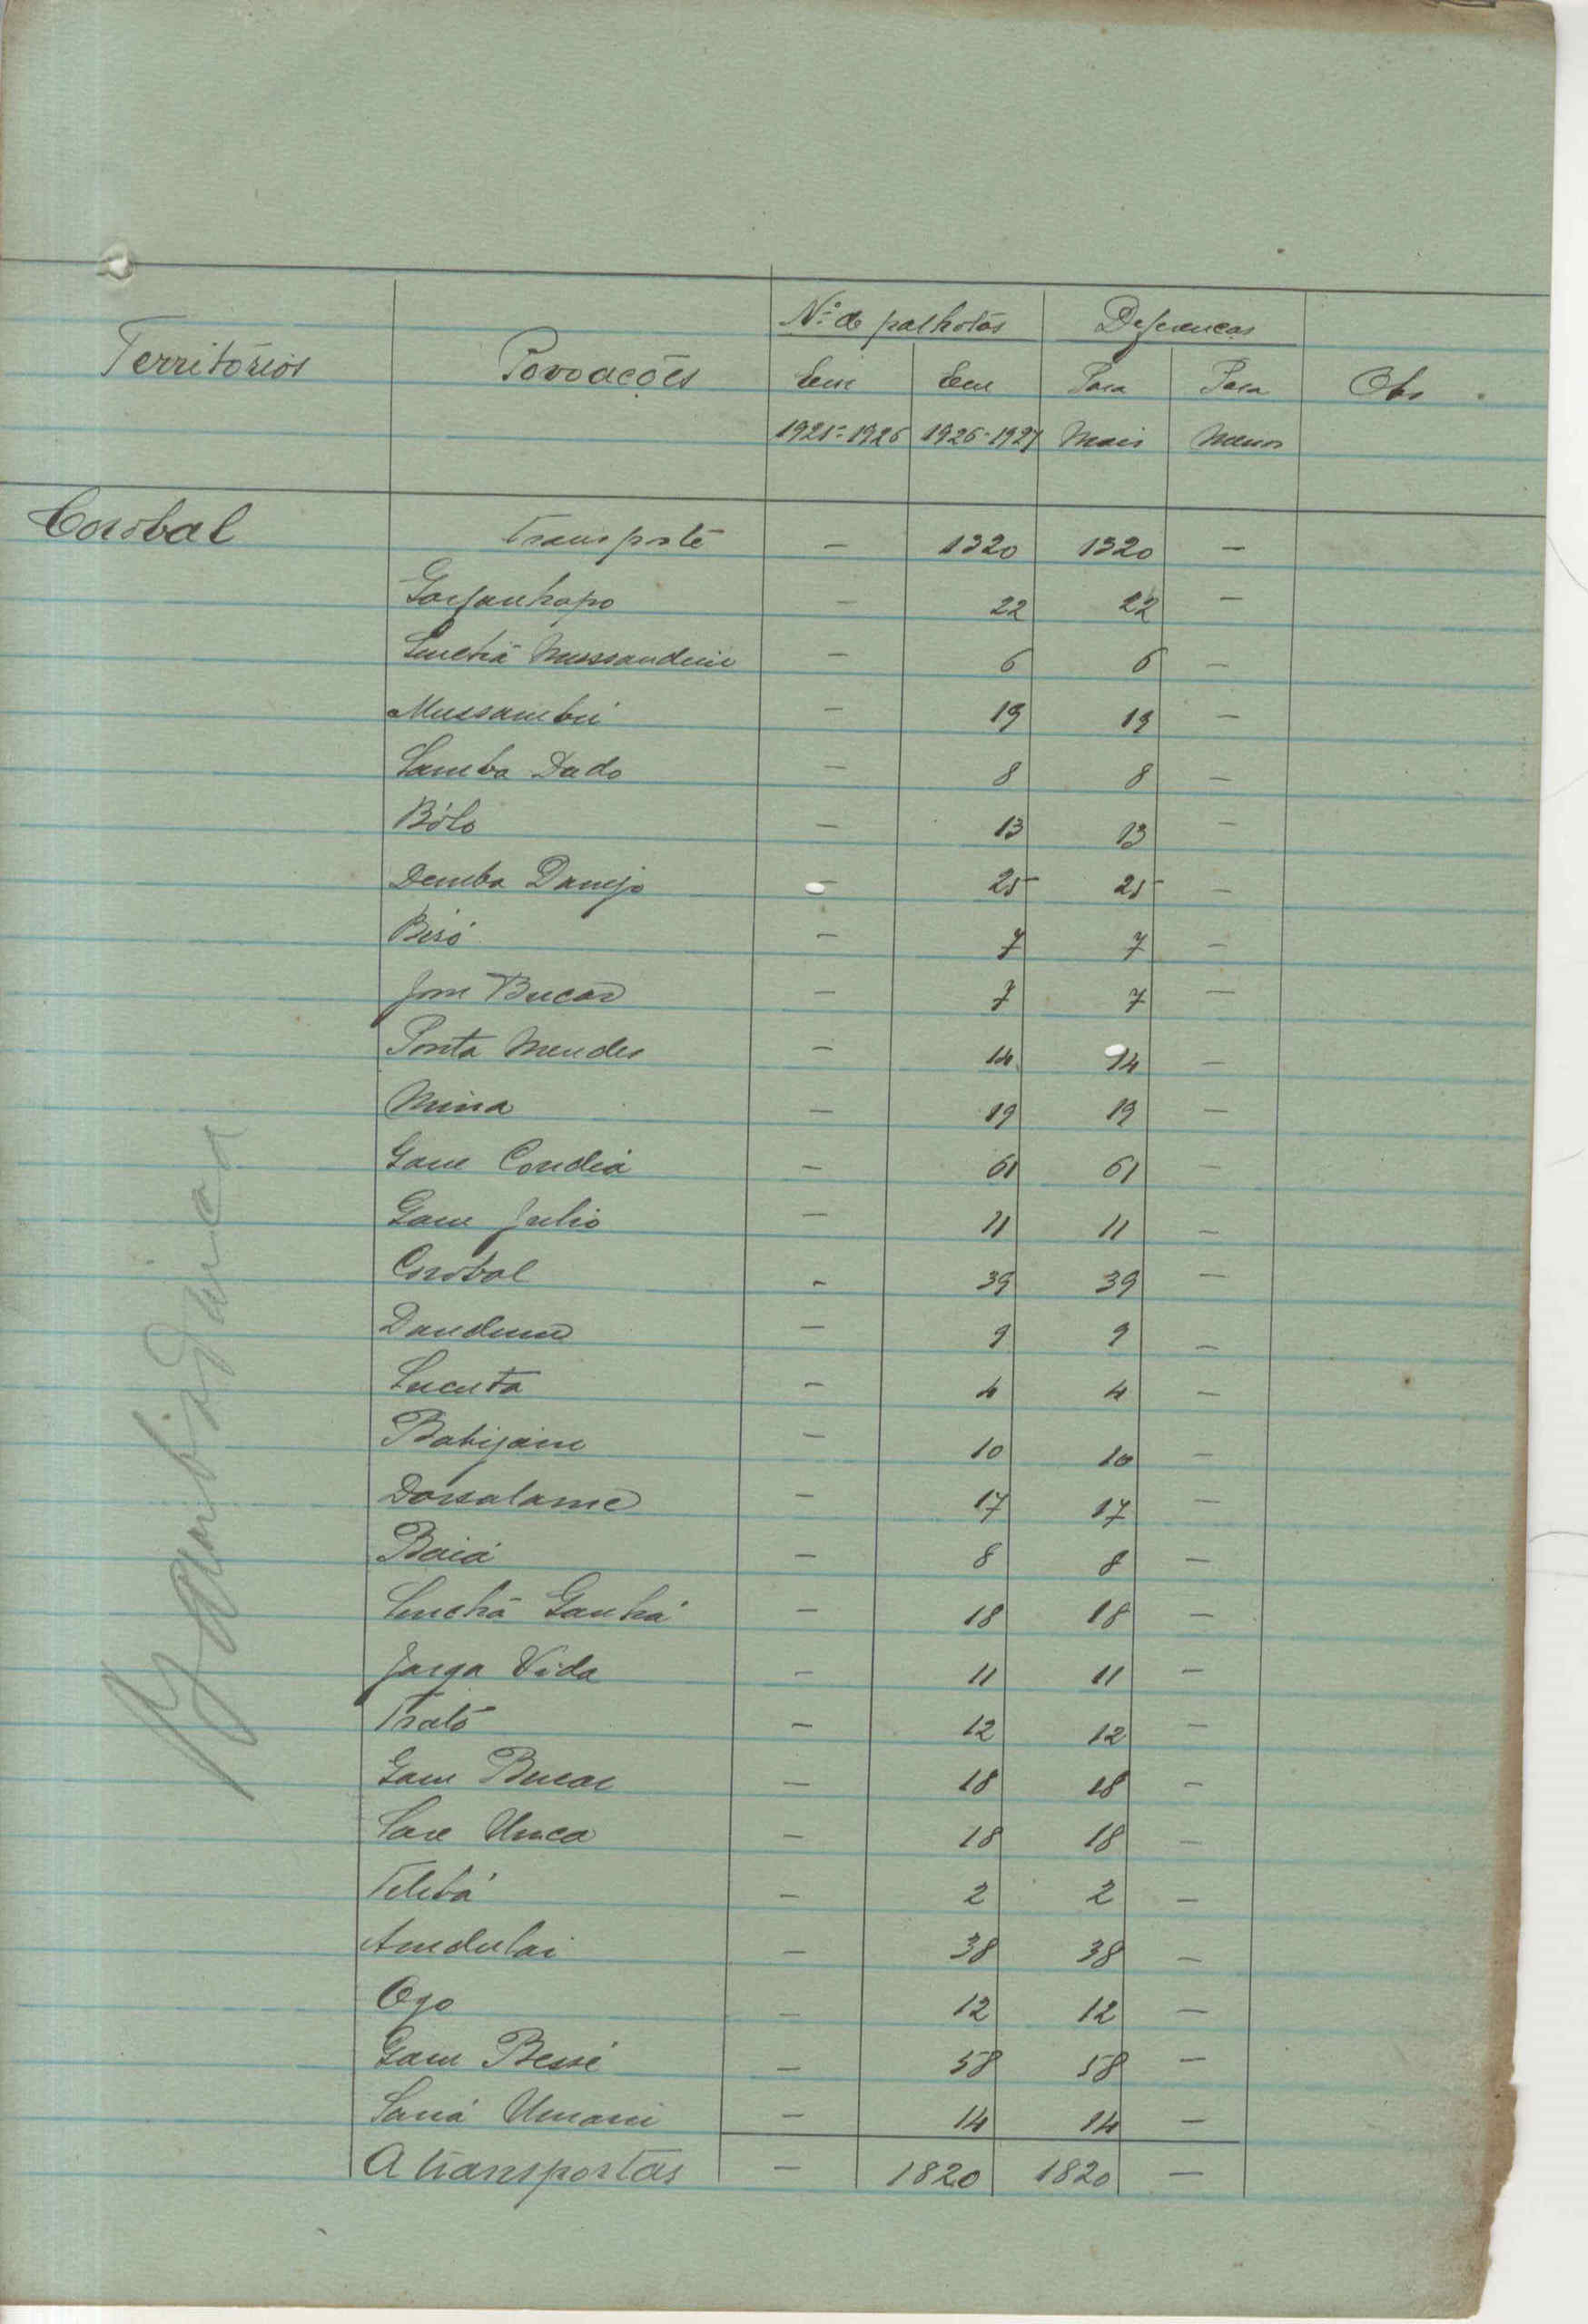 Nº de palhotas Diferenças
Territórios Povoações Em Em Para Para Obs
1925-1926 1926-1927 Mais Menos
Corobal Transporte — 1320 1320 —
Garjanhapo — 22 22 —
Sinchã Mussandim — 6 6 —
Mussambú — 19 19 —
Samba Dado — 8 8 —
Bólo — 13 13 —
Demba Danejo — 25 25 —
Biró — 7 7 —
Jom Bucar — 7 7 —
Ponta Mendes — 14 14 —
Mina — 19 19 —
Gam Condiá — 61 61 —
Gam Julio — 11 11 —
Corobal - 39 39 —
Dandum — 9 9 —
Sucuta — 4 4 —
Batijam — 10 10 —
Darsalame — 17 17 —
Baiá — 8 8 —
Sinchã Ganhá — 18 18 —
Jarga Vida — 11 11 —
Trató — 12 12 —
Gam Bucar — 18 18 —
Sare Unca — 18 18 —
Telibá — 2 2 —
Amdulai — 38 38 —
Ogo — 12 12 —
Gam Bessé — 58 58 —
Saná Umani — 14 14 —
A transportar — 1820 1820 —
Bambadinca